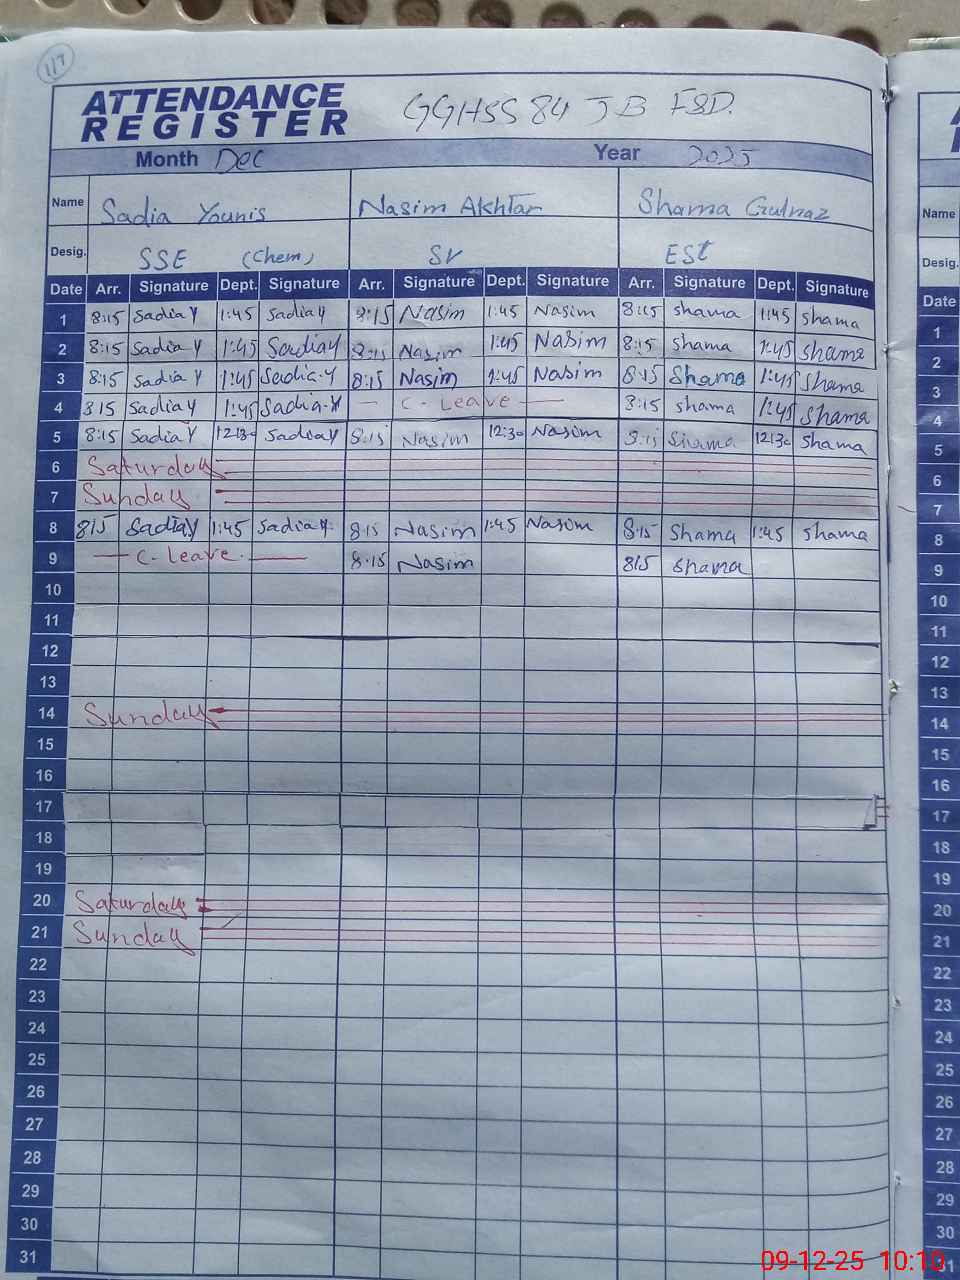 117
ATTENDANCE
REGISTER
GGHSS 84 JB FSD.
Month Dec Year 2025
Name Sadia Younis Nasim Akhtar Shama Gulnaz
Desig. SSE (Chem) SV EST
Date Arr. Signature Dept. Signature Arr. Signature Dept. Signature Arr. Signature Dept. Signature
1 8:15 Sadia Y 1:45 Sadia Y 8:15 Nasim 1:45 Nasim 8:15 shama 1:45 shama
2 8:15 Sadia Y 1:45 Sadia Y 8:15 Nasim 1:45 Nasim 8:15 shama 1:45 shama
3 8:15 Sadia Y 1:45 Sadia.Y 8:15 Nasim 1:45 Nasim 8:15 Shama 1:45 Shama
4 815 Sadia Y 1:45 Sadia.Y — C. Leave — 8:15 shama 1:45 shama
5 8:15 Sadia Y 12:30 Sadia Y 8:15 Nasim 12:30 Nasim 8:15 Shama 12:30 Shama
6 Saturday
7 Sunday
8 815 Sadia Y 1:45 Sadia Y. 8:15 Nasim 1:45 Nasim 8:15 Shama 1:45 shama
9 — C. Leave. — 8:15 Nasim 815 Shama
10
11
12
13
14 Sunday
15
16
17
18
19
20 Saturday
21 Sunday
22
23
24
25
26
27
28
29
30
31
A
Name
Desig.
Date
1
2
3
4
5
6
7
8
9
10
11
12
13
14
15
16
17
18
19
20
21
22
23
24
25
26
27
28
29
30
31
09-12-25 10:10